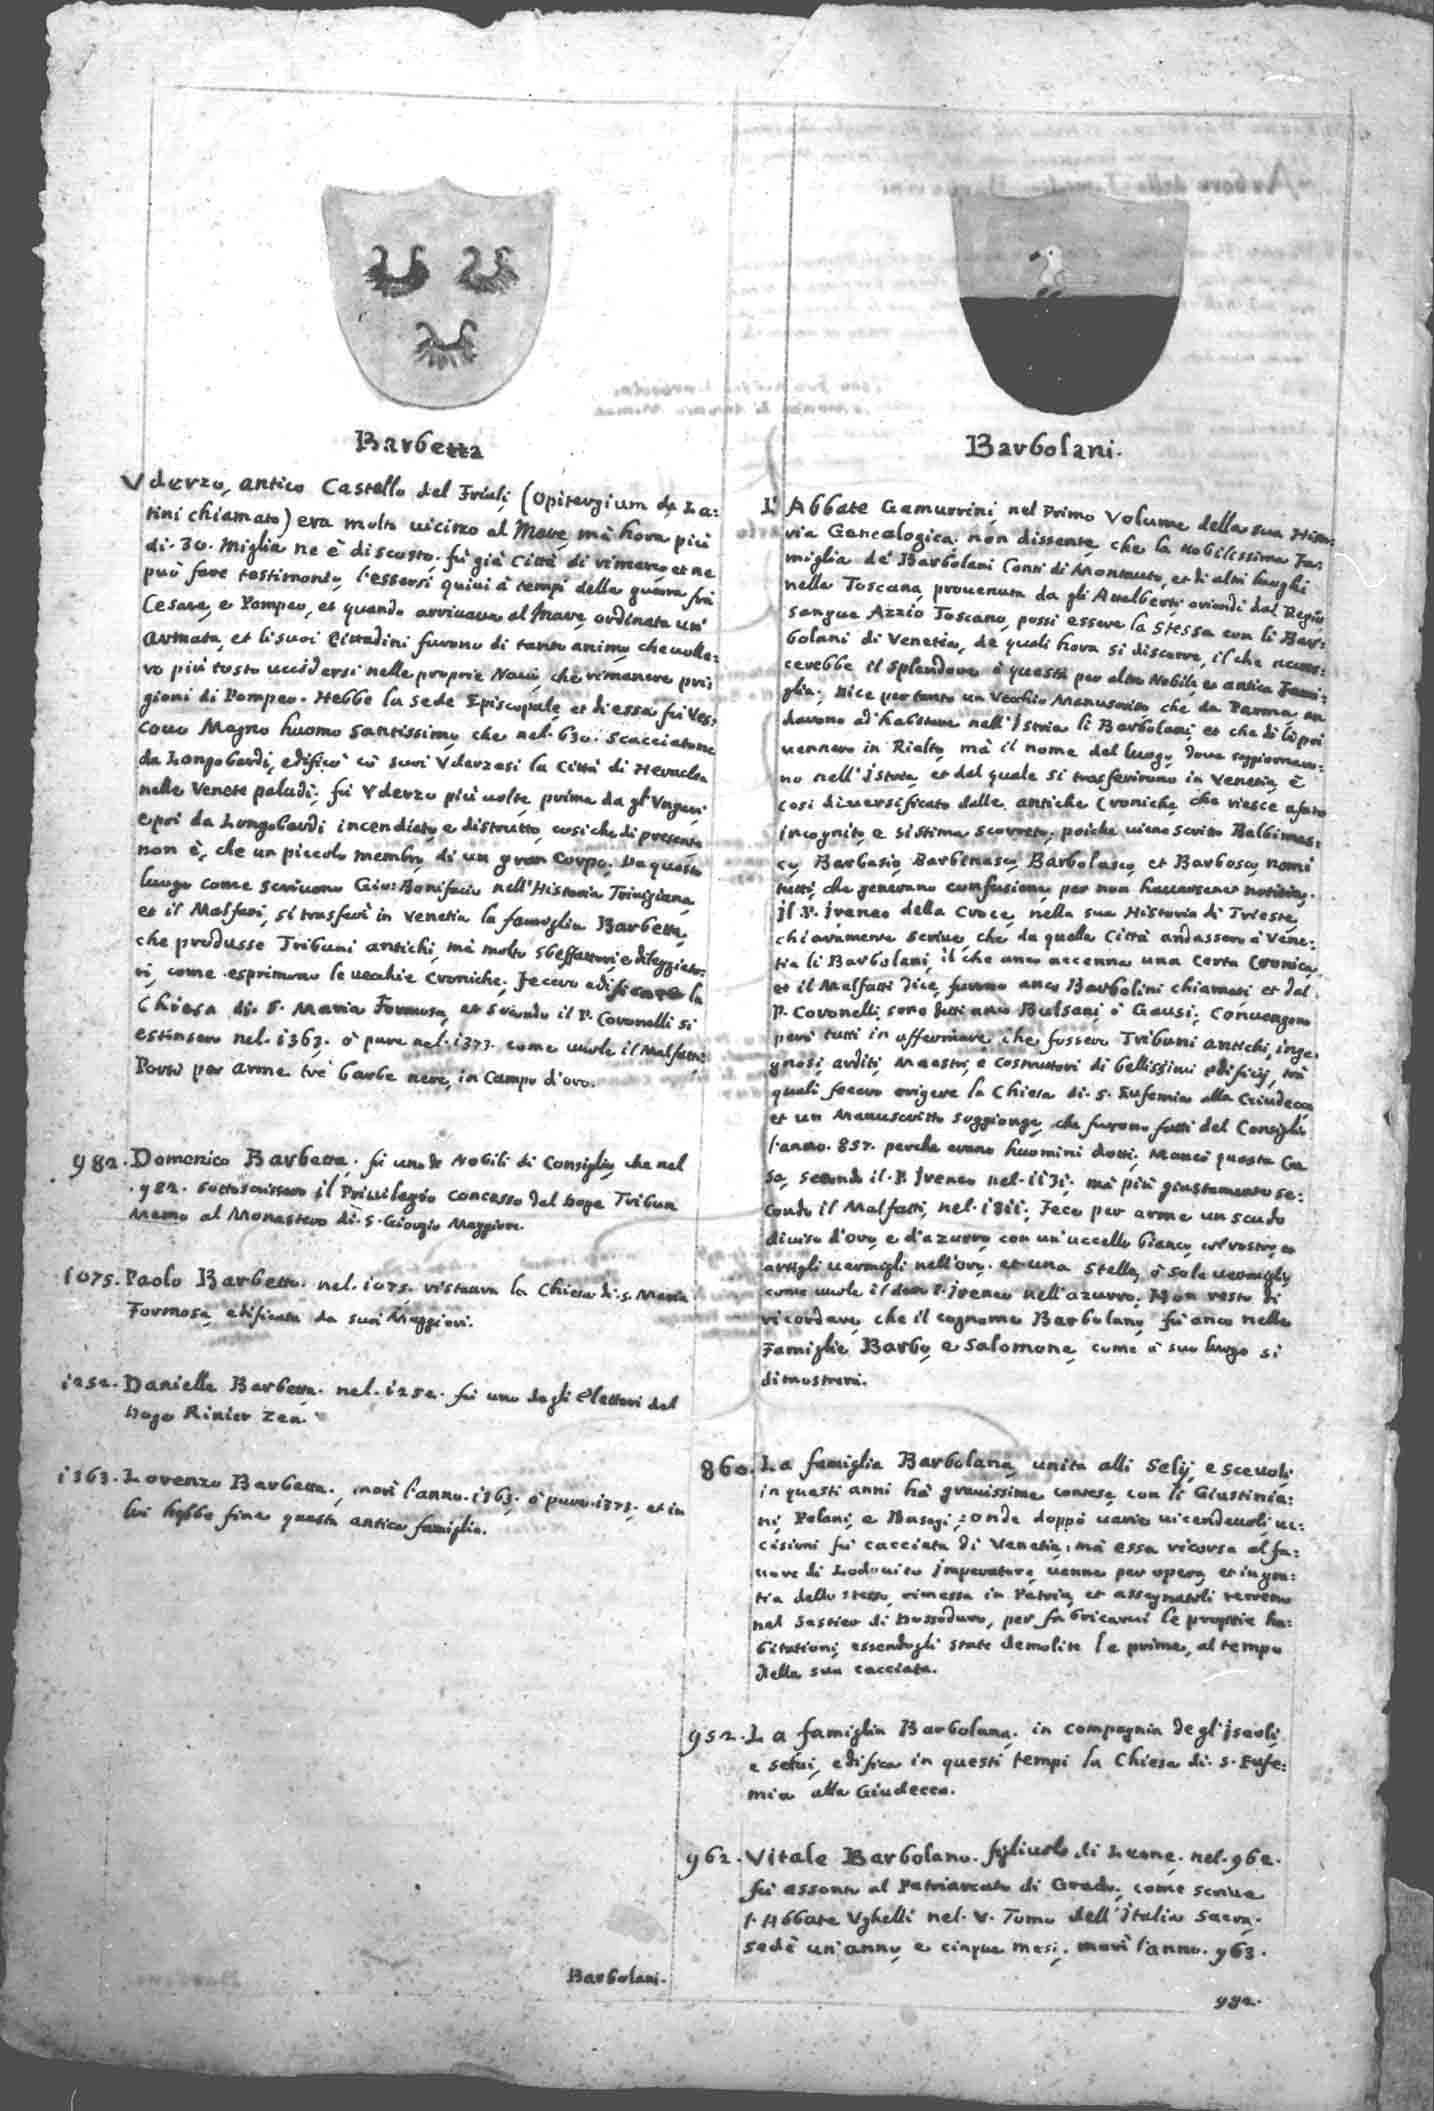 Barbetta
Vderzo, antico Castello del Friuli (Opitergium da La:
tini chiamato) era molto uicino al Mare, mà hora più
di. 30. Miglia ne è discosto. fù già Città di rimarco et ne
può fare testimonio, l'essersi quiui à tempi della guerra frà
Cesare, e Pompeo, et quando arriuaua al Mare, ordinata un'
Armata, et li suoi Cittadini furono di tanto animo, che uolle:
ro più tosto uccidersi nelle proprie Naui, che rimanere pri:
gioni di Pompeo. Hebbe la sede Episcopale, et di essa fù Ves:
couo Magno huomo santissimo, che nel. 630. scacciatone
da Longobardi, edificò cò suoi Vderzesi la Città di Heraclea
nelle Venete paludi. fù Vderzo più uolte, prima da gl'Vngari
e poi da Longobardi incendiato, e distrutto, cosi che di presente
non è, che un piccolo membro di un gran Corpo. Da questo
luogo come scriuono Gio: Bonifacio nell'Historia Triuigiana,
et il Malfatti, si trasferì in Venetia la famiglia Barbetta,
che produsse Tribuni antichi, mà molto sbeffattori, e dileggiato:
ri, come esprimono le uecchie Croniche. Fecero edificare la
Chiesa di. S. Maria Formosa, et secondo il P. Coronelli si
estinsero nel. 1363. ò pure nel. 1373. come uuole il Malfatti.
Portò per arme trè barbe nere, in Campo d'oro.
982. Domenico Barbetta. fù uno de Nobili di Consiglio, che nel
. 982. sottoscrissero il Priuilegio concesso del Doge Tribun
Memo al Monastero di. S. Giorgio Maggiore.
1075. Paolo Barbetta. nel. 1075. ristaura la Chiesa di. S. Maria
Formosa, edificata da suoi Maggiori.
1252. Danielle Barbetta. nel. 1252. fù uno degli Elettori del
Doge Rinier Zen.
1363. Lorenzo Barbetta, morì l'anno. 1363. ò pure. 1373. et in
lui hebbe fine questa antica famiglia.
Barbolani.
Barbolani.
L' Abbate Gamurrini, nel Primo Volume della sua Histo:
ria Genealogica. non dissente, che la nobilissima Fa:
miglia de' Barbolani Conti di Montauto, et di altri luoghi
nella Toscana, prouenuta da gli Adalberti, oriondi dal Regio
sangue Azzio, Toscano, possi essere la stessa con li Bar:
bolani di Venetia, de quali hora si discorre, il che accres:
cerebbe il splendore à questa per altro Nobile, et antica Fami:
glia. Dice per tanto un Vecchio Manuscritto che da Parma, an
darono ad'habitare nell'Istria li Barbolani, et che di là poi
uennero in Rialto, mà il nome del luogo, doue soggiornaro:
no nell'Istria, et dal quale si trasferirono in Venetia, è
cosi diuersificato dalle antiche Croniche, che riesce afatto
incognito, e si stima scorreto, poiche uiene scritto Balbinas:
co, Barbasio, Barbinasco, Barbolasco, et Barbosco, nomi
tutti, che generano confusione, per non hauersene notitia.
Il P. Ireneo della Croce, nella sua Historia di Trieste,
chiaramente scriue, che da quella Città andassero à Vene:
tia li Barbolani, il che anco accenna una certa Cronica,
et il Malfatti dice, furono anco Barbolini chiamati et dal
P. Coronelli, sono detti anco Bulsani, ò Gausi. Conuengono
però tutti in affermare, che fossero Tribuni antichi, inge:
gnosi, arditi, Maestri, e Costruttori di bellissimi edificij, trà
quali fecero erigere la Chiesa di. S. Eufemia alla Giudecca,
et un Manuscritto soggionge, che furono fatti del Consiglio
l'anno. 857. perche erano huomini dotti. Mancò questa Ca
sa, secondo il. P. Ireneo nel. 1131. mà più giustamente se:
condo il Malfatti, nel. 1311. Fece per arme un scudo
diuiso d'oro, e d'azurro, con un'uccello bianco, col rostro, et
artigli uermigli nell'oro. et una stella, ò sole uermiglio,
come uuole il detto P. Ireneo nell'azurro. Non resto di
ricordare, che il cognome Barbolano, fù anco nelle
Famiglie Barbo, e Salomone, come à suo luogo si
dimostrerà.
860. La famiglia Barbolana, unita alli Selij, e Sceuoli,
in questi anni hà grauissime contese, con li Giustinia:
ni, Polani, e Basegi: onde doppò uarie uicendeuoli uc:
cisioni fù cacciata di Venetia: mà essa ricorsa al fa:
uore di Lodouico Imperatore, uenne per opera, et in gra:
tia dello stesso, rimessa in Patria, et assegnatoli terreno
nel Sestier di Dossoduro, per fabricarui le proprie ha:
bitationi, essendogli state demolite le prime, al tempo
della sua cacciata.
952. La famiglia Barbolana, in compagnia degl'Iseoli,
e Selui, edifica in questi tempi la Chiesa di. S. Eufe:
mia alla Giudecca.
962. Vitale Barbolano. figliuolo di Leone. nel. 962.
fù assonto al Patriarcato di Grado, come scriue
l'Abbate Vghelli nel. V. Tomo dell'Italia Sacra.
sedè un'anno, e cinque mesi. morì l'anno. 963.
982.